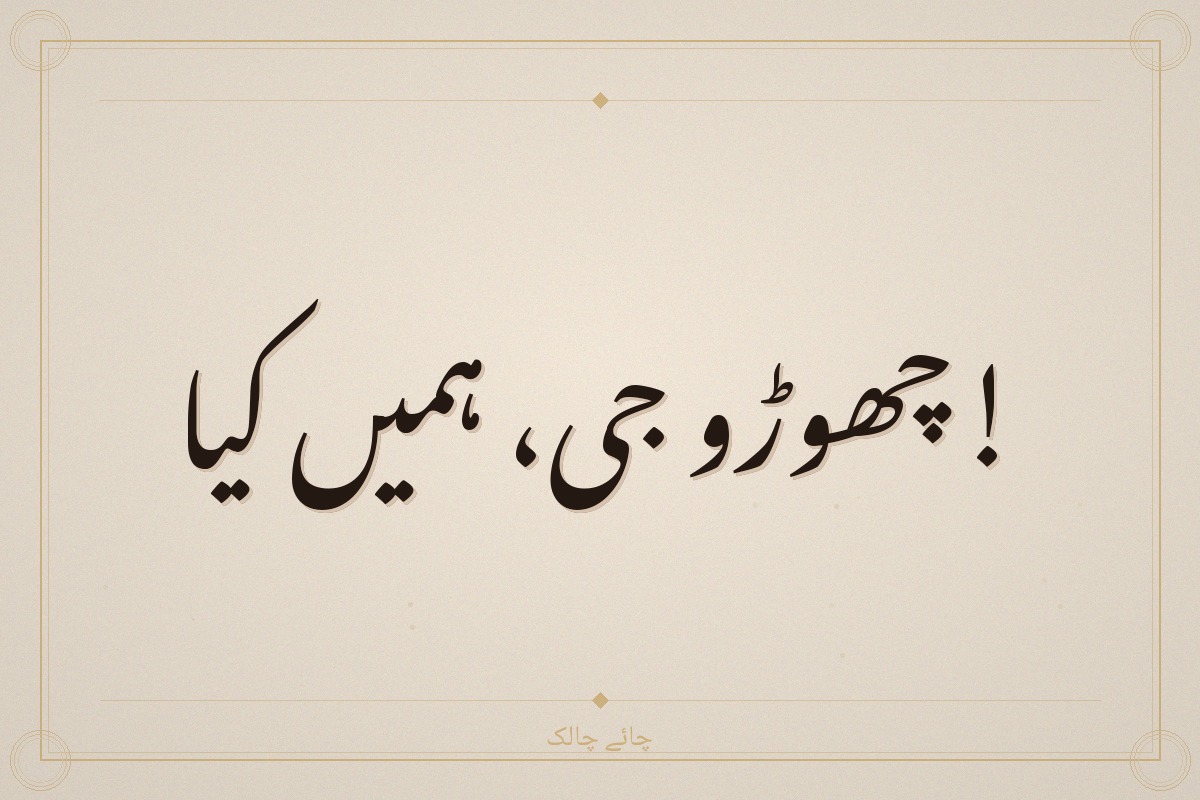 چھوڑو جی، ہمیں کیا!
چائے چالک